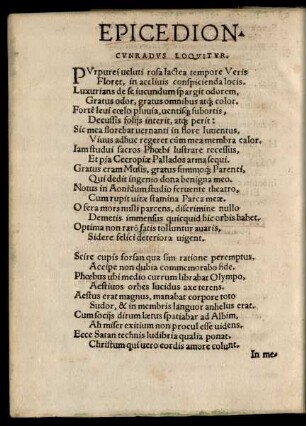 EPICEDION.
CVNRADVS LOQVITVR.
PVrpurei ueluti rosa lactea tempore Veris
Floret, in accliuis conspicienda locis.
Luxurians de se iucundum spargit odorem,
Gratus odor, gratus omnibus atq; color.
Forte leui cœlo pluuia, uentisq; subortis,
Decussis folijs interit, atq; perit :
Sic mea florebat uernanti in flore Iuuentus,
Viuus adhuc regeret cùm mea membra calor.
Iam studui sacros Phœbi lustrare recessus,
Et pia Cecropiæ Pallados arma sequi.
Gratus eram Musis, gratus summoq; Parenti,
Qui dedit ingenio dona benigna meo.
Notus in Aonidum studio feruente theatro,
Cum rupit uitæ stamina Parca meæ.
O sera mors nulli parcens, discrimine nullo
Demetis immensus quicquid hic orbis habet.
Optima non rarò fatis tolluntur auaris,
Sidere felici deteriora uigent.
Scire cupis forsan qua sim ratione peremptus,
Accipe non dubia commemorabo fide.
Phœbus ubi medio currum librabat Olympo,
Aestiuos orbes lucidus axe terens.
Aestus erat magnus, manabat corpore toto
Sudor, & in membris languor anhelus erat.
Cum socijs dirum lætus spatiabar ad Albim,
Ah miser exitium non procul esse uidens.
Ecce Satan technis ludibria qualia ponat
Christum qui uero cordis amore colunt.
In me-